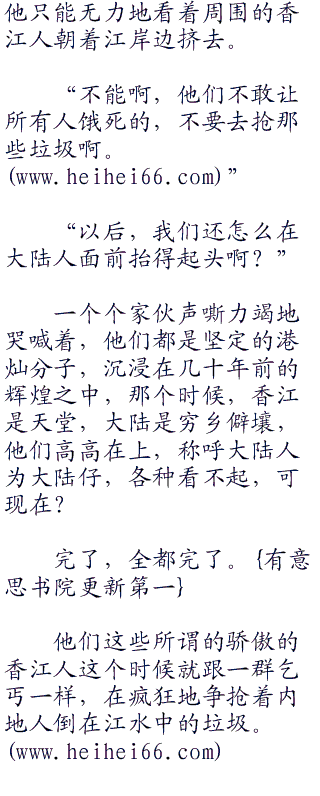 他只能无力地看着周围的香
江人朝着江岸边挤去。
“不能啊，他们不敢让
所有人饿死的，不要去抢那
些垃圾啊。
(www.heihei66.com)”
“以后，我们还怎么在
大陆人面前抬得起头啊？”
一个个家伙声嘶力竭地
哭喊着，他们都是坚定的港
灿分子，沉浸在几十年前的
辉煌之中，那个时候，香江
是天堂，大陆是穷乡僻壤，
他们高高在上，称呼大陆人
为大陆仔，各种看不起，可
现在？
完了，全都完了。{有意
思书院更新第一}
他们这些所谓的骄傲的
香江人这个时候就跟一群乞
丐一样，在疯狂地争抢着内
地人倒在江水中的垃圾。
(www.heihei66.com)